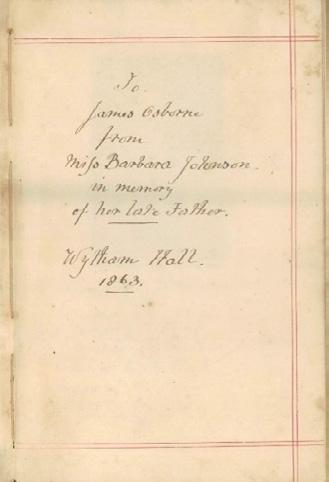 To
James Osborne
from
Miss Barbara Johnson.
in memory
of her late Father.
Wytham Hall.
1863.